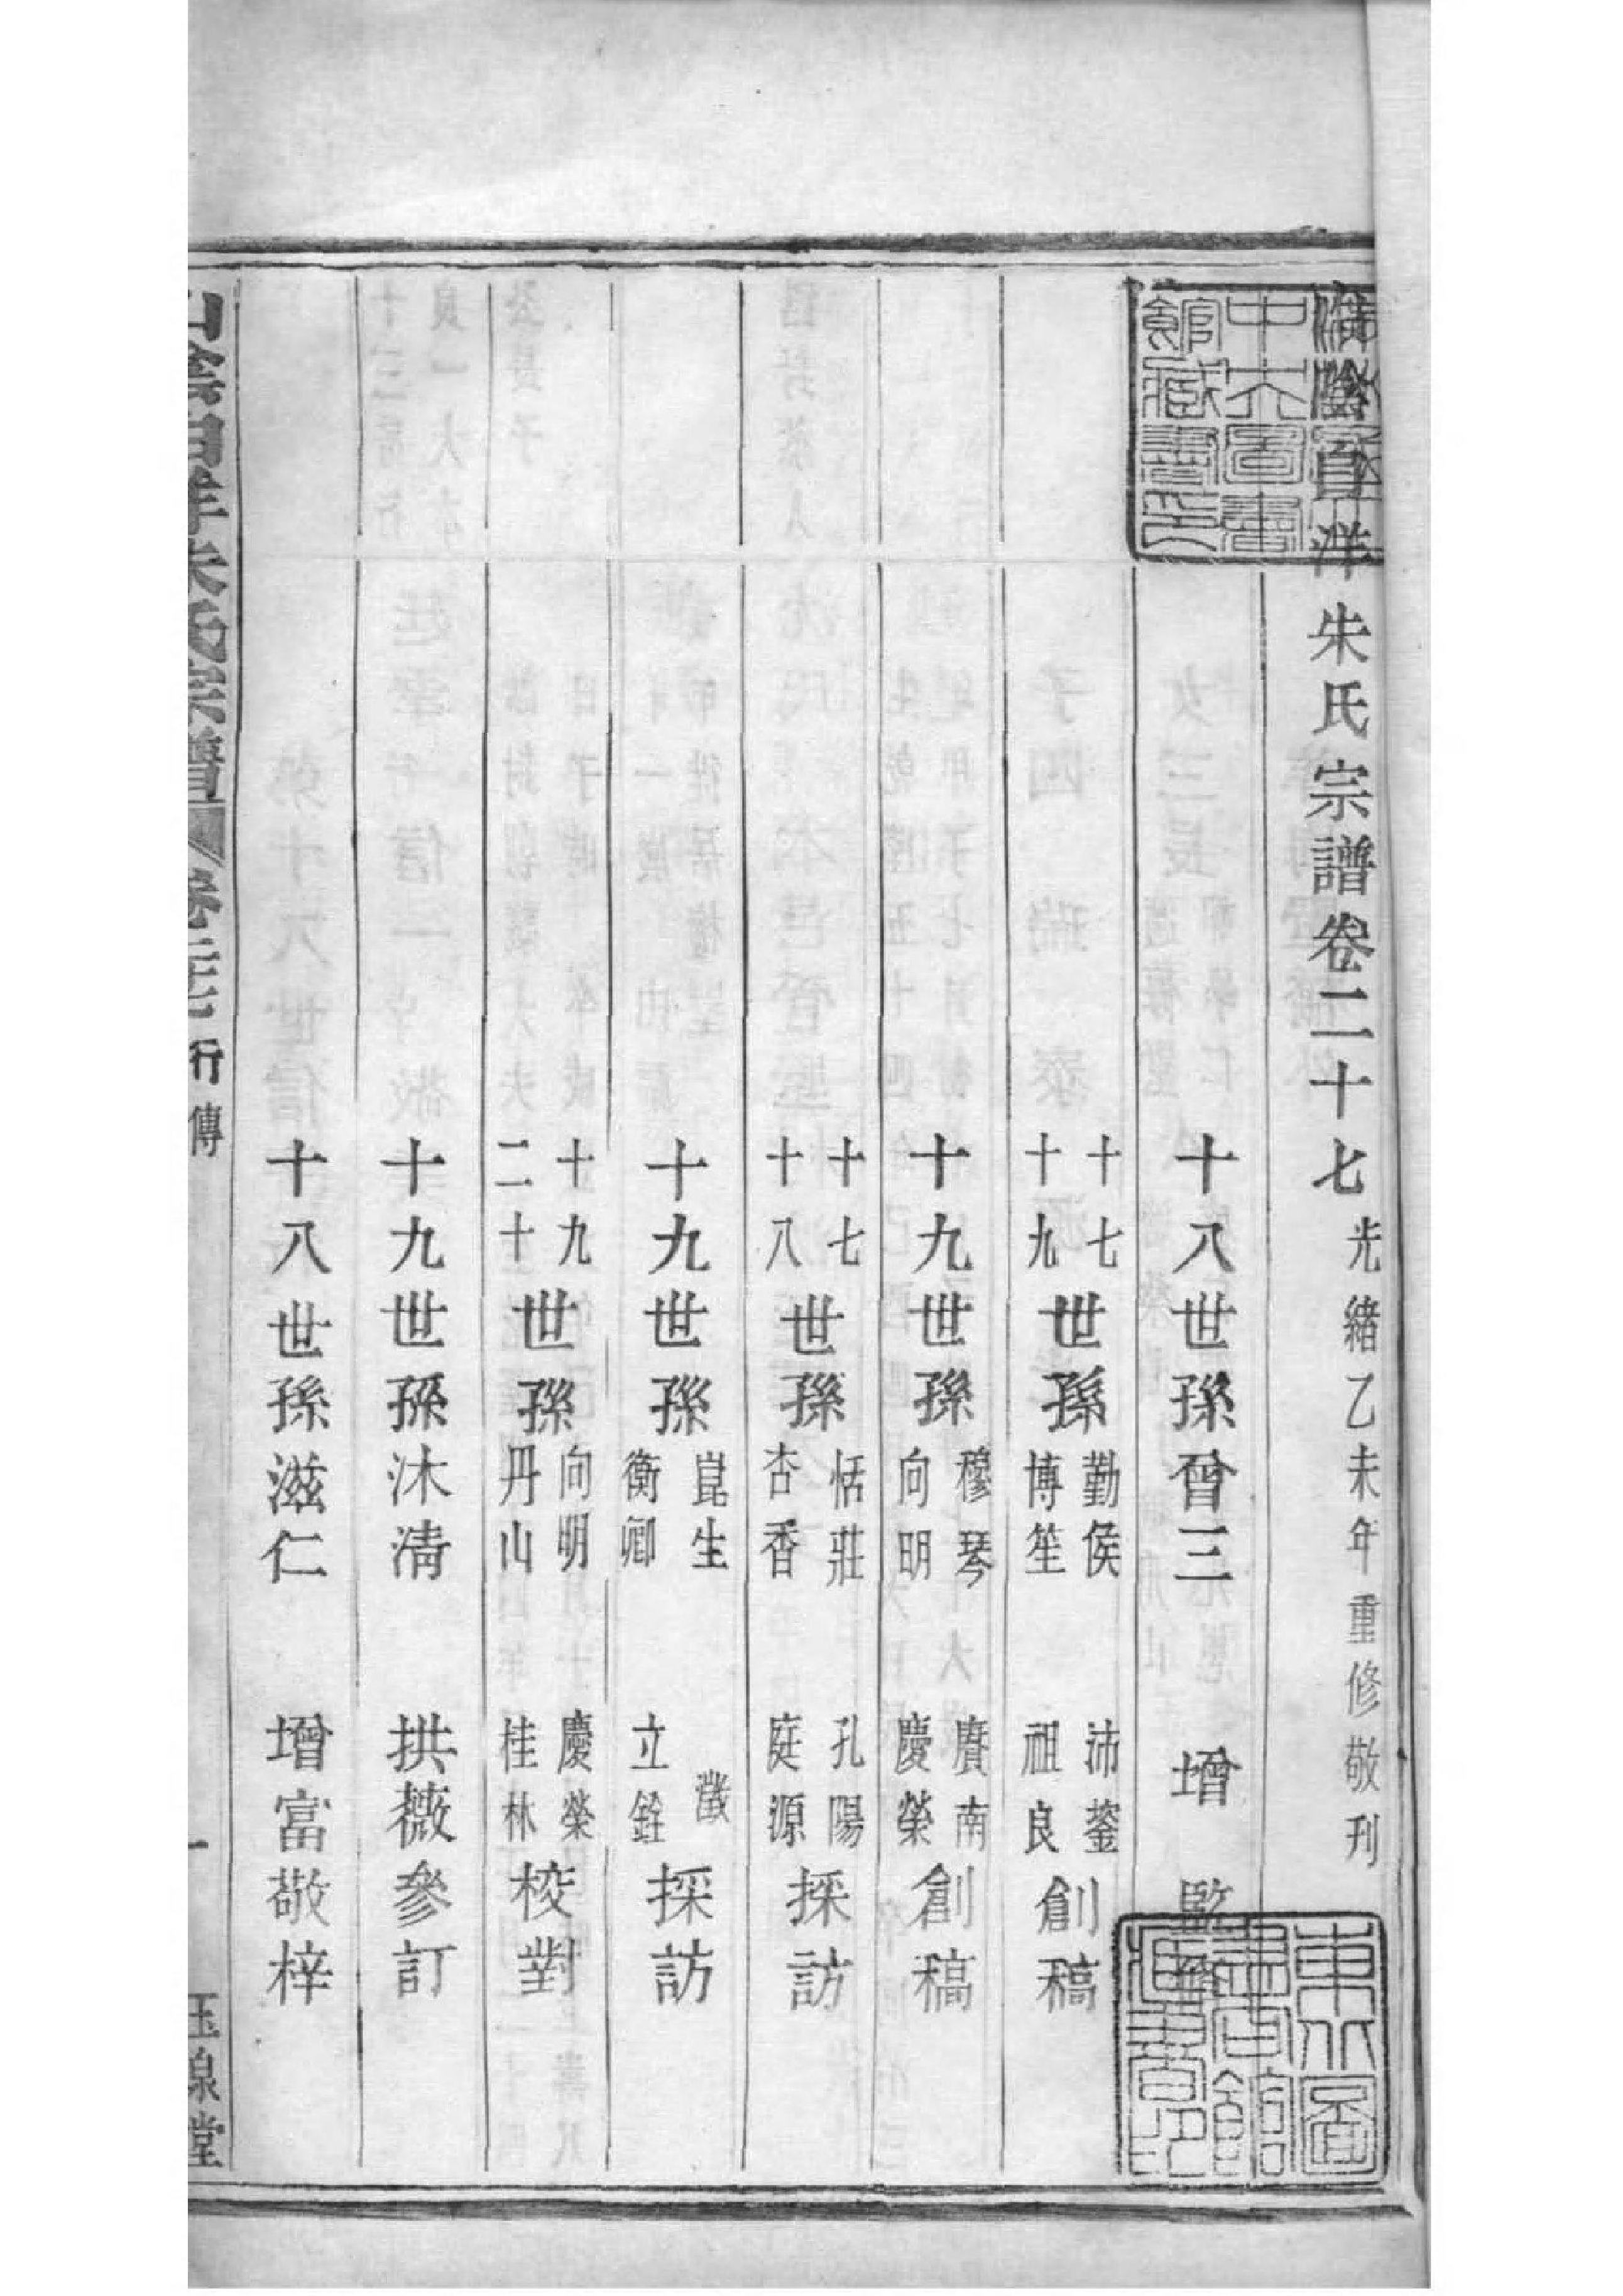 山陰白洋朱氏宗譜卷二十七 光緒乙未年重修敬刊
十八世孫曾三 增 監
十七十九世孫勤侯博笙 沛蓥祖良創稿
十九世孫穆琴向明 賡南慶榮創稿
十七十八世孫恬莊杏香 孔陽庭源採訪
十九世孫崑生衡卿 澂立銓採訪
十九二十世孫向明丹山 慶榮桂林校對
十九世孫沐清 拱薇參訂
十八世孫滋仁 增富敬梓
山陰白洋朱氏宗譜 卷二十七 行傳 一 玉泉堂